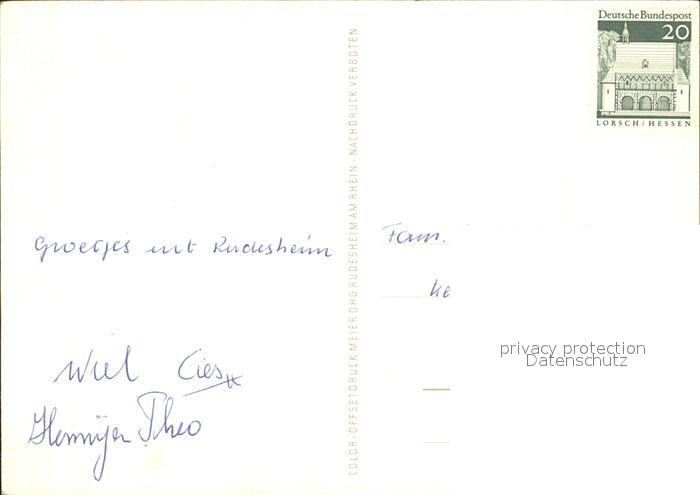 Deutsche Bundespost
20
LORSCH / HESSEN
COLOR-OFFSETDRUCK MEIER OHG RUDESHEIM AM RHEIN - NACHDRUCK VERBOTEN
Groetjes uit Rudesheim
Fam.
Ke
Wiel Cies
Theo
privacy protection
Datenschutz